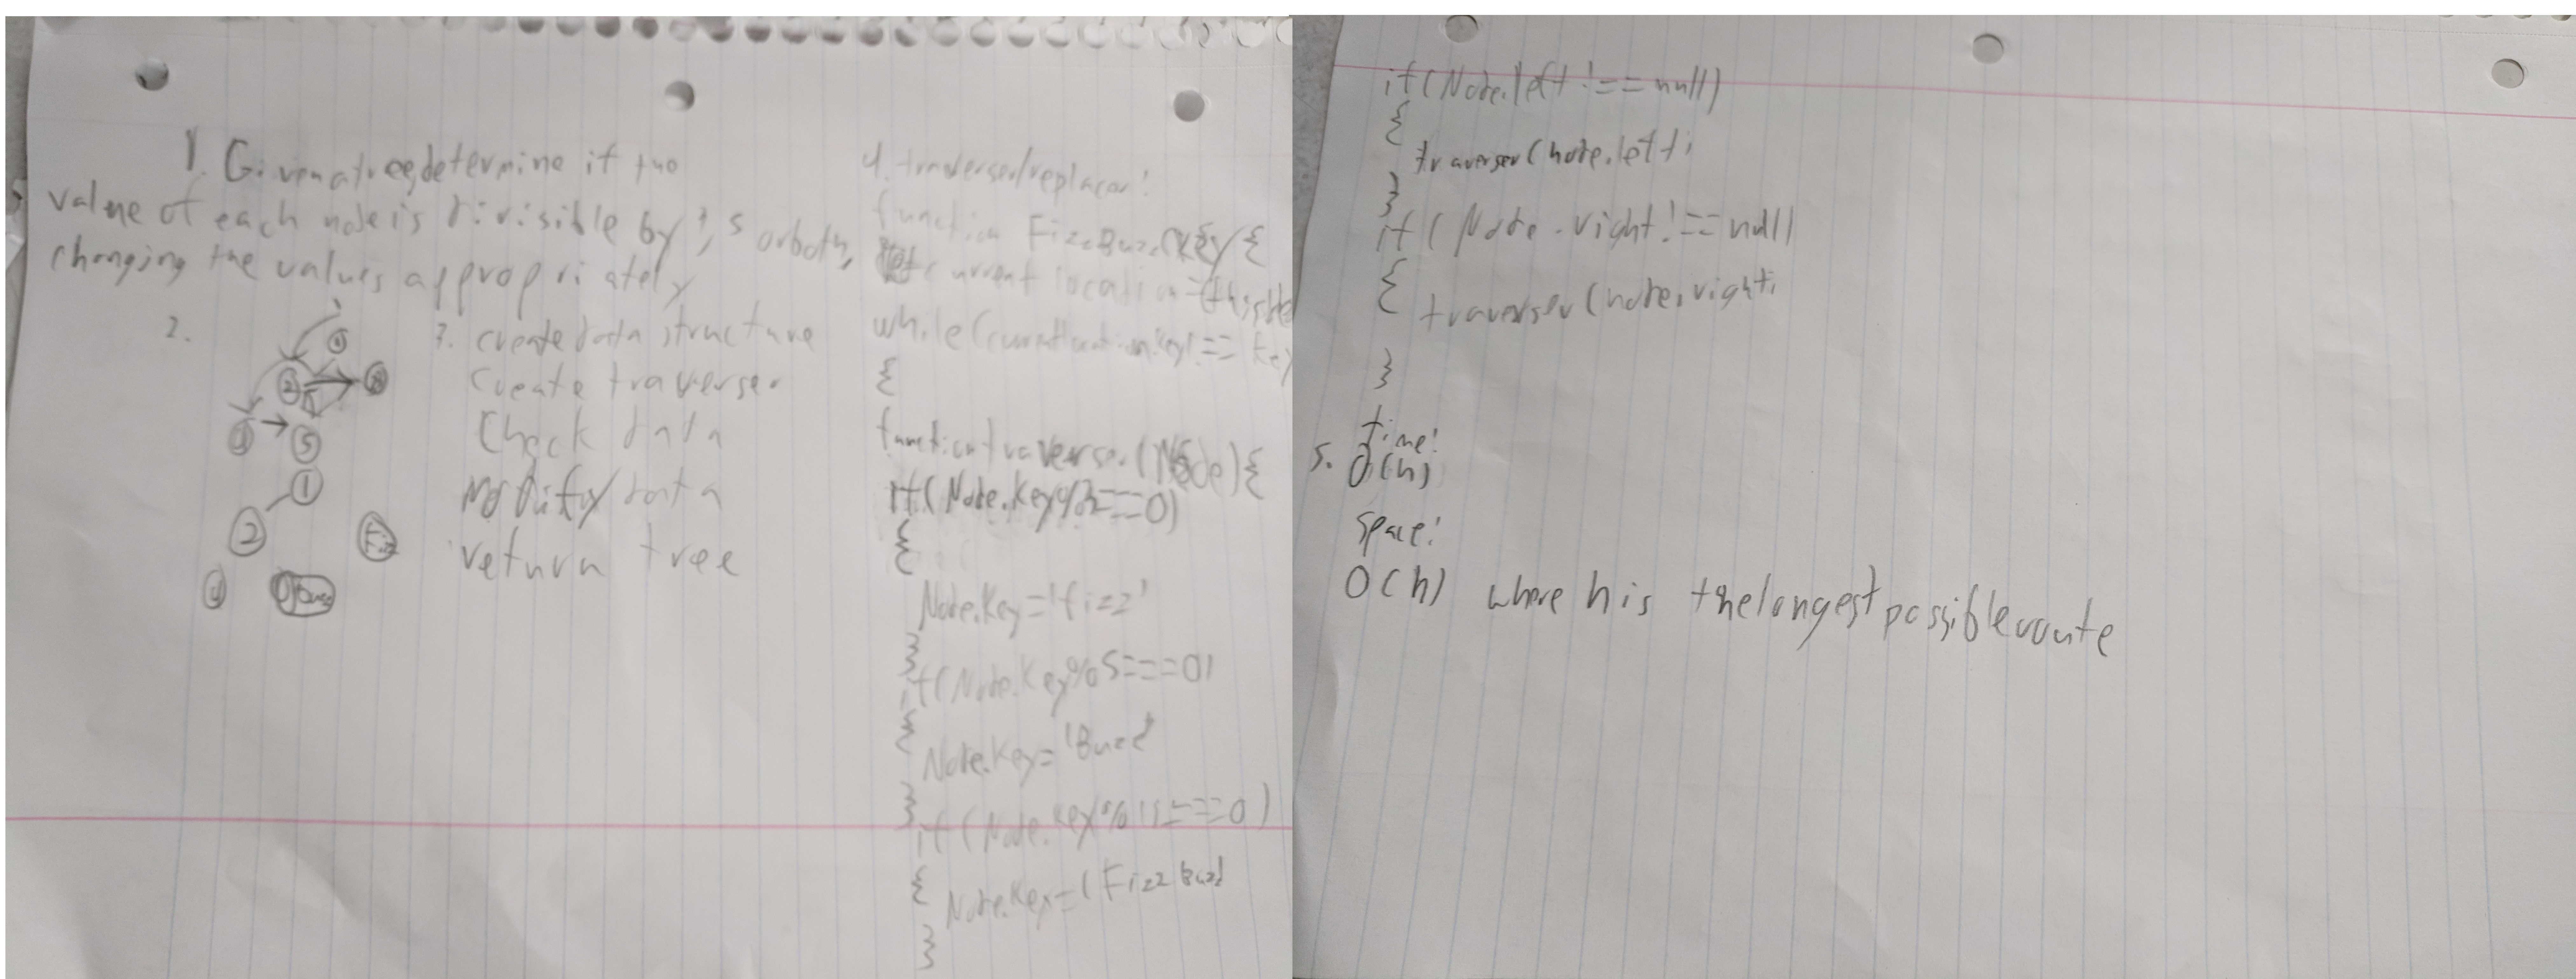 1. Given a tree, determine if the
value of each node is divisible by 3, 5 or both,
changing the values appropriately
2.
2
5
1
2
Fizz
4
Buzz
3. create data structure
create traverser
Check data
Modify data
return tree
4. traverser/replacer:
function FizzBuzz(key{
current location=(this
while(currentlocation.key!== key
{
function traverser(Node){
if(Node.Key%3===0)
{
Node.Key='fizz'
}
if(Node.Key%5===0)
{
Node.Key='Buzz'
}
if(Node.Key%15===0)
{
Node.Key='FizzBuzz
}
if(Node.left!==null)
{
traverser(node.left;
}
if(Node.right!==null)
{
traverser(node.right;
}
time:
5. O(n)
space:
O(h) where h is the longest possible route